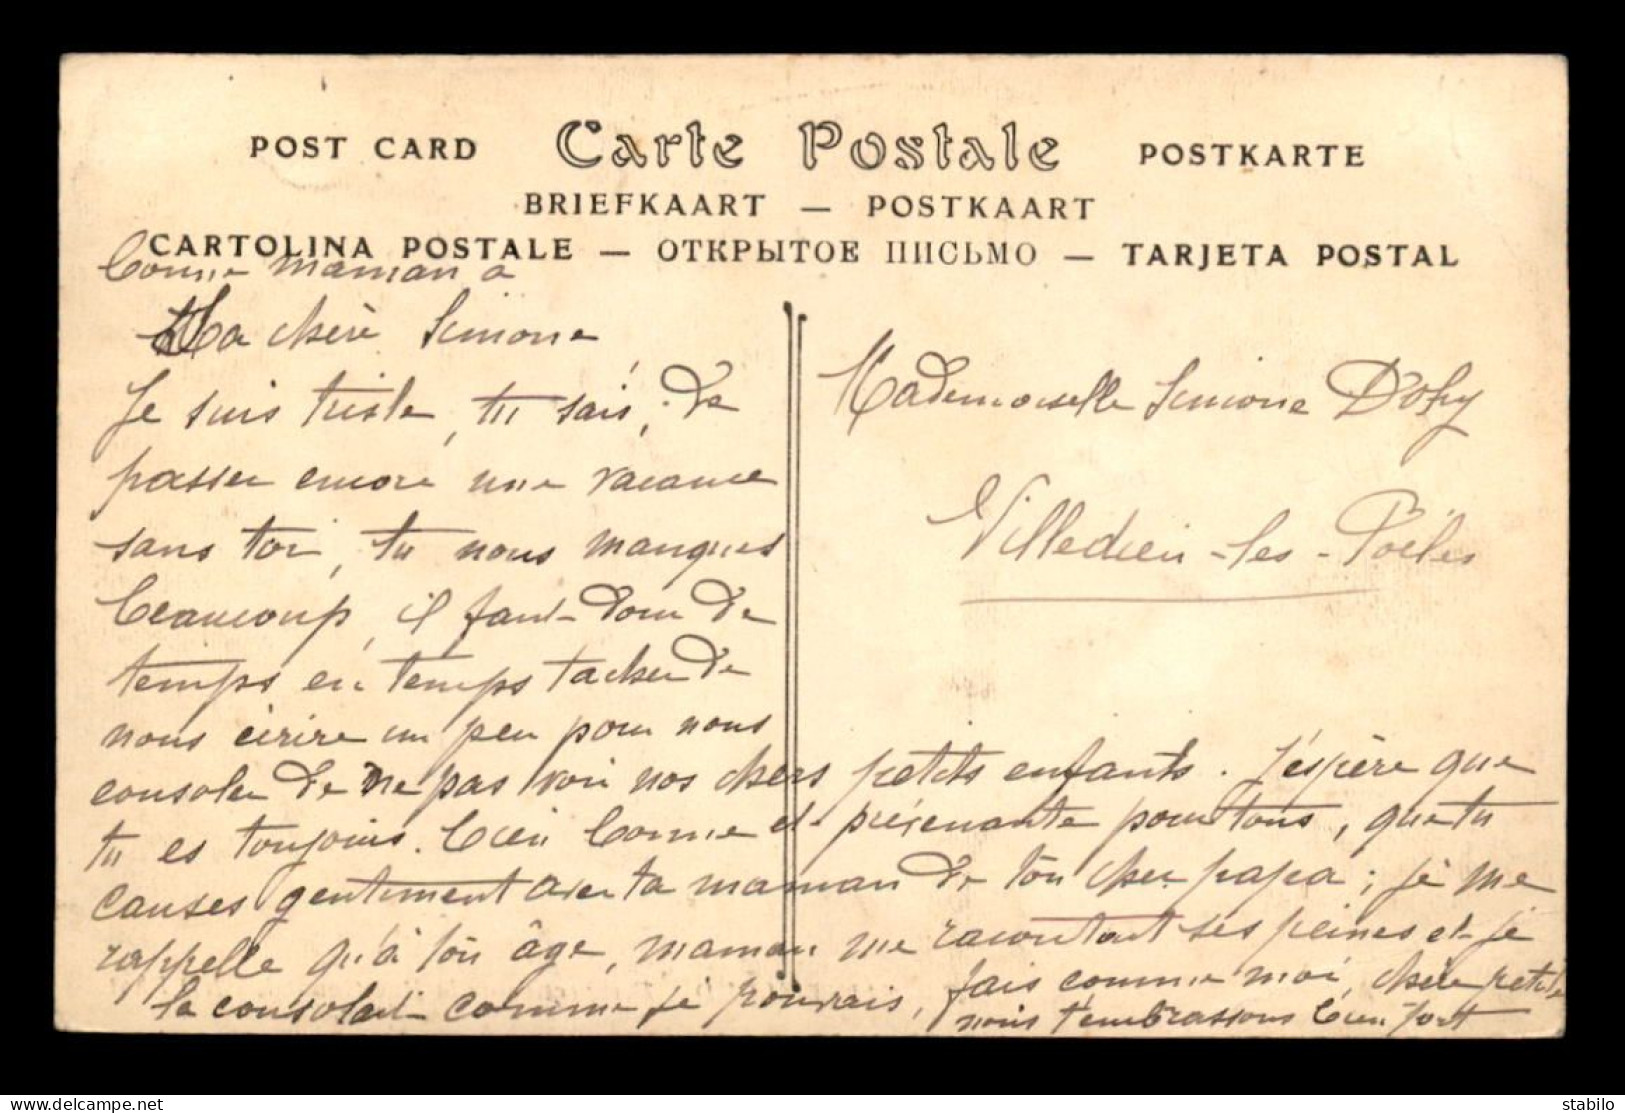 POST CARD Carte Postale POSTKARTE
BRIEFKAART — POSTKAART
CARTOLINA POSTALE — ОТКРЫТОЕ ПИСЬМО — TARJETA POSTAL
bonne maman a
Ma chère Simone
Je suis triste, tu sais, de
passer encore une vacance
sans toi, tu nous manques
beaucoup, il faut donc de
temps en temps tacher de
nous écrire un peu pour nous
consoler de ne pas voir nos chers petits enfants. J'espère que
tu es toujours bien bonne et prévenante pour tous, que tu
causes gentiment avec ta maman de ton cher papa; je me
rappelle qu'à ton âge, maman me racontant ses peines et je
la consolait comme je pouvais, fais comme moi, chère petite
nous t'embrassons bien fort
Mademoiselle Simone
Villedieu-les-Poêles
stabilo